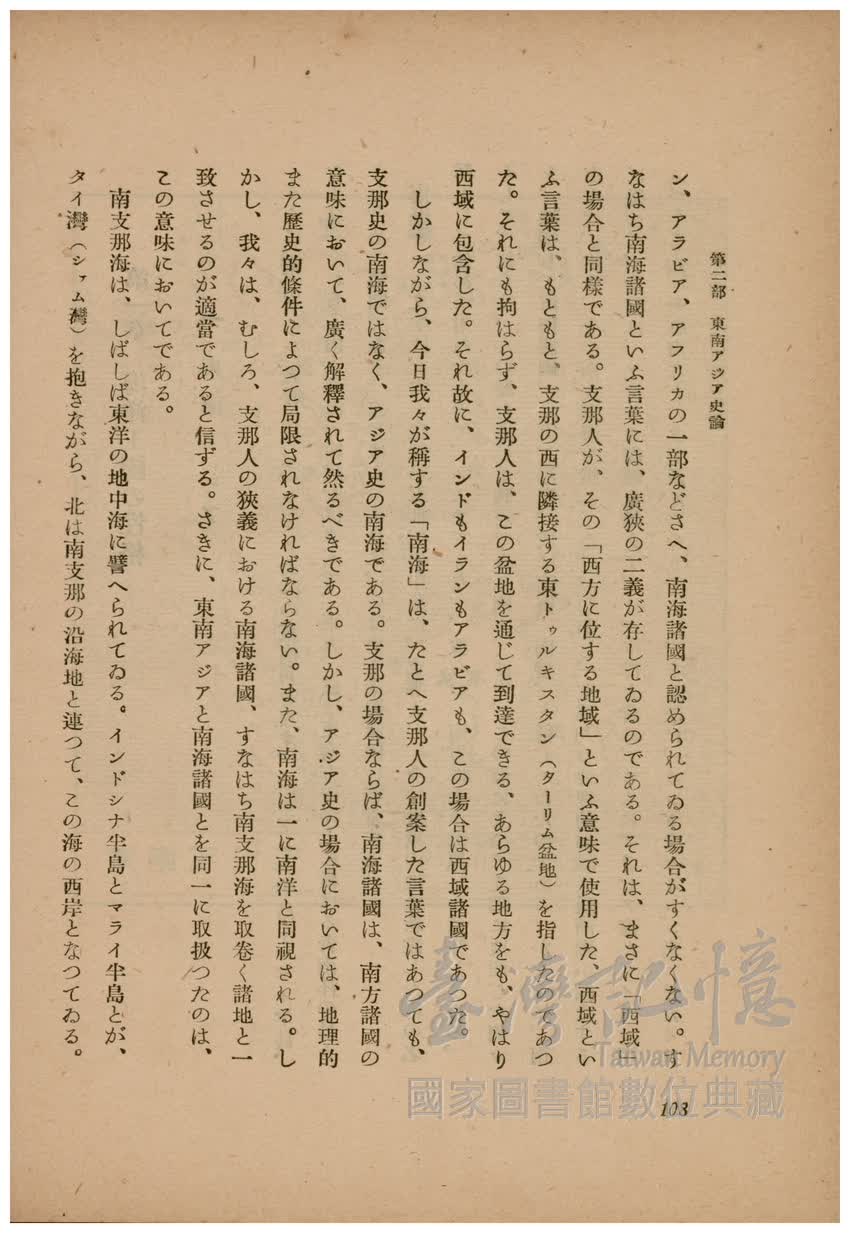 第二部 東南アジア史論
ン、アラビア、アフリカの一部などさへ、南海諸國と認められてゐる場合がすくなくない。す
なはち南海諸國といふ言葉には、廣狹の二義が存してゐるのである。それは、まさに「西域」
の場合と同樣である。支那人が、その「西方に位する地域」といふ意味で使用した、西域とい
ふ言葉は、もともと、支那の西に隣接する東トゥルキスタン（ターリム盆地）を指したのであつ
た。それにも拘はらず、支那人は、この盆地を通じて到達できる、あらゆる地方をも、やはり
西域に包含した。それ故に、インドもイランもアラビアも、この場合は西域諸國であつた。
しかしながら、今日我々が稱する「南海」は、たとへ支那人の創案した言葉ではあつても、
支那史の南海ではなく、アジア史の南海である。支那の場合ならば、南海諸國は、南方諸國の
意味において、廣く解釋されて然るべきである。しかし、アジア史の場合においては、地理的
また歷史的條件によつて局限されなければならない。また、南海は一に南洋と同視される。し
かし、我々は、むしろ、支那人の狹義における南海諸國、すなはち南支那海を取卷く諸地と一
致させるのが適當であると信ずる。さきに、東南アジアと南海諸國とを同一に取扱つたのは、
この意味においてである。
南支那海は、しばしば東洋の地中海に譬へられてゐる。インドシナ半島とマライ半島とが、
タイ灣（シァム灣）を抱きながら、北は南支那の沿海地と連つて、この海の西岸となつてゐる。
103
臺灣記憶
Taiwan Memory
國家圖書館數位典藏